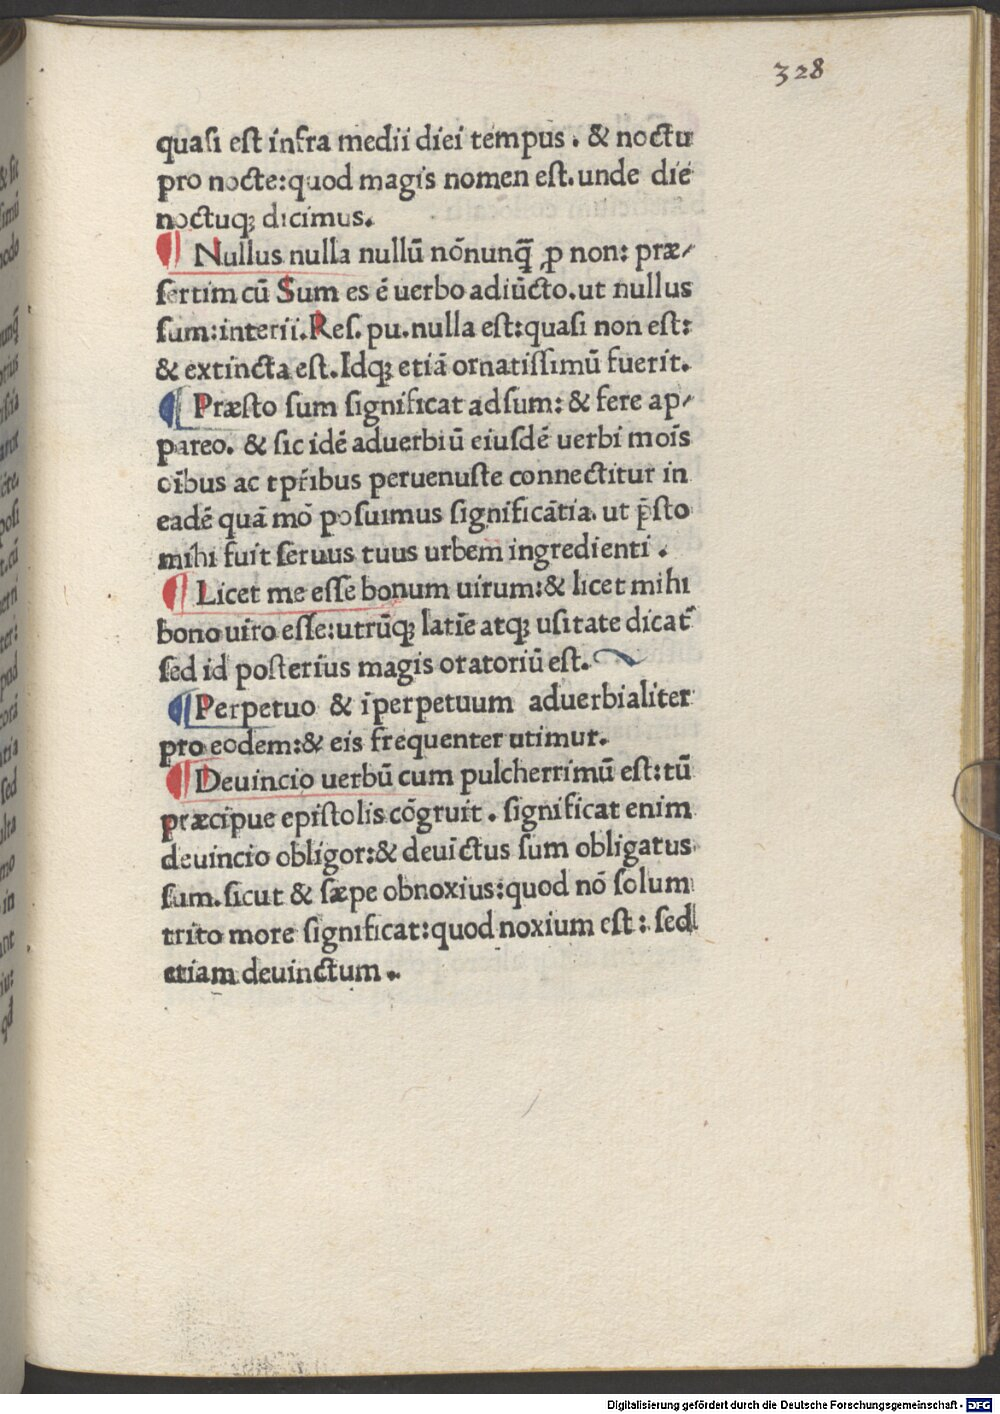 328
quasi est infra medii diei tempus. & noctu
pro nocte: quod magis nomen est. unde die
noctuqꝫ dicimus.
¶ Nullus nulla nullū nōnunq̄ ꝓ non: præ-
sertim cū Sum es ē uerbo adiūcto. ut nullus
sum: interii. Res. pu. nulla est: quasi non est:
& extincta est. Idqꝫ etiā ornatissimū fuerit.
¶ Præsto sum significat adsum: & fere ap-
pareo. & sic idē aduerbiū eiusdē uerbi moīs
oībus ac tpr̄ibus peruenuste connectitur in
eadē quā mō posuimus significātia. ut p̄sto
mihi fuit seruus tuus urbem ingredienti.
¶ Licet me esse bonum uirum: & licet mihi
bono uiro esse: utrūqꝫ latīe atqꝫ usitate dicat̄
sed id posterius magis oratoriū est.
¶ Perpetuo & īperpetuum aduerbialiter
pro eodem: & eis frequenter utimur.
¶ Deuincio uerbū cum pulcherrimū est: tū
præcipue epistolis cōgruit. significat enim
deuincio obligor: & deuīctus sum obligatus
sum. sicut & sæpe obnoxius: quod nō solum
trito more significat: quod noxium est: sed
etiam deuinctum.
Digitalisierung gefördert durch die Deutsche Forschungsgemeinschaft - DFG